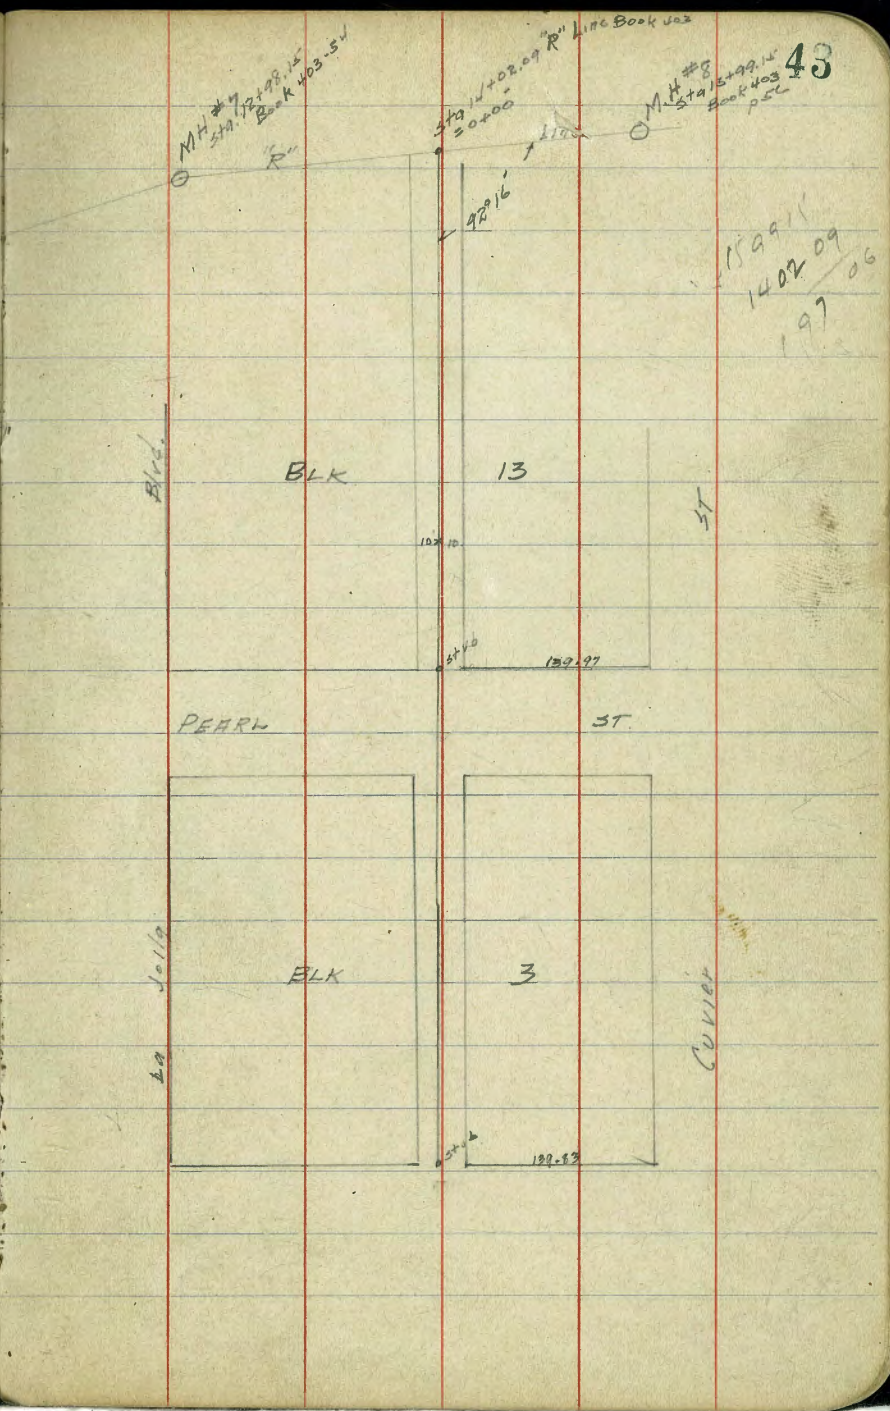 43
MH #7
Sta. 12+98.15
Book 403-54
Sta 14+02.09 "R" Line Book 403
= 0+00
M.H #8
Sta 15+99.15
Book 403
p56
"R"
Line
92°16'
1599 15
1402 09
197 06
Blvd.
BLK 13
ST
139.97
PEARL ST.
La Jolla
BLK 3
Cuvier
139.83